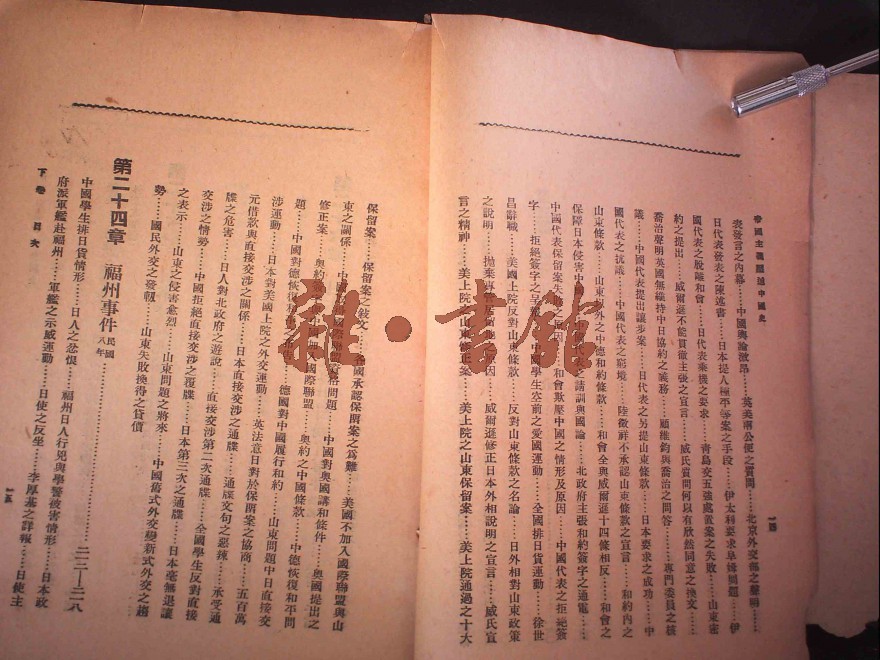 帝國主義壓迫中國史
表發言之內幕……中國輿論激昂……英美兩公使之質問……北京外交部之聲明……
日代表發表之陳述書……日本提人種平等案之手段……伊太利要求阜姆問題……伊
國代表之脫離和會……日代表乘機之要求……青島交五強處置案之失敗……山東密
約之提出……威爾遜不能貫徹主張之宣言……威氏質問何以有欣然同意之換文……
喬治聲明英國無維持中日協約之義務……顧維鈞與喬治之問答……專門委員之核
議……中國代表提出讓步案……日代表之另提山東條款……日本要求之成功……中
國代表之抗議……中國代表之窮境……陸徵祥不承認山東條款之宣言……和約內之
山東條款……山東以外之中德和約條款……和會全與威爾遜十四條相反……和會之
保障日本侵害中國……中國代表之請訓與國論……北政府主張和約簽字之通電……
中國代表保留案失敗之原因……和會欺壓中國之情形及原因……中國代表之拒絕簽
字……拒絕簽字之呈報……中國學生空前之愛國運動……全國排日貨運動……徐世
昌辭職……美國上院反對山東條款……反對山東條款之名論……日外相對山東政策
之說明……拋棄專管居留地之原因……威爾遜修正日本外相說明之宣言……威氏宣
言之精神……美上院之山東修正案……美上院之山東保留案……美上院通過之十大
一四
保留案……保留案之敍文……各國承認保留案之爲難……美國不加入國際聯盟與山
東之關係……中國取得國際聯盟資格問題……中國對奧國講和條件……奧國提出之
修正案……奧約簽字與加入國際聯盟……奧約之中國條款……中德恢復和平問
題……中國對德恢復和平之布告……德國對中國履行和約……山東問題中日直接交
涉運動……日本對美國上院之外交運動……英法意日對於保留案之協商……五百萬
元借款與直接交涉之關係……日本直接交涉之通牒……通牒文句之惡辣……承受通
牒之危害……日人對北政府之遊說……直接交涉第二次通牒……全國學生反對直接
交涉之情勢……中國拒絕直接交涉之覆牒……日本第三次之通牒……日本毫無退讓
之表示……山東之侵害愈烈……山東問題之將來……中國舊式外交變新式外交之趨
勢……國民外交之發軔……山東失敗換得之貨價
第二十四章 福州事件 民國八年……二一二—二一八
中國學生排日貨情形……日人之忿恨……福州日人行兇與學警被害情形……日本政
府派軍艦赴福州……軍艦之示威運動……日使之反坐……李厚基之詳報……日使主
下卷 目次
一五
雜·書館